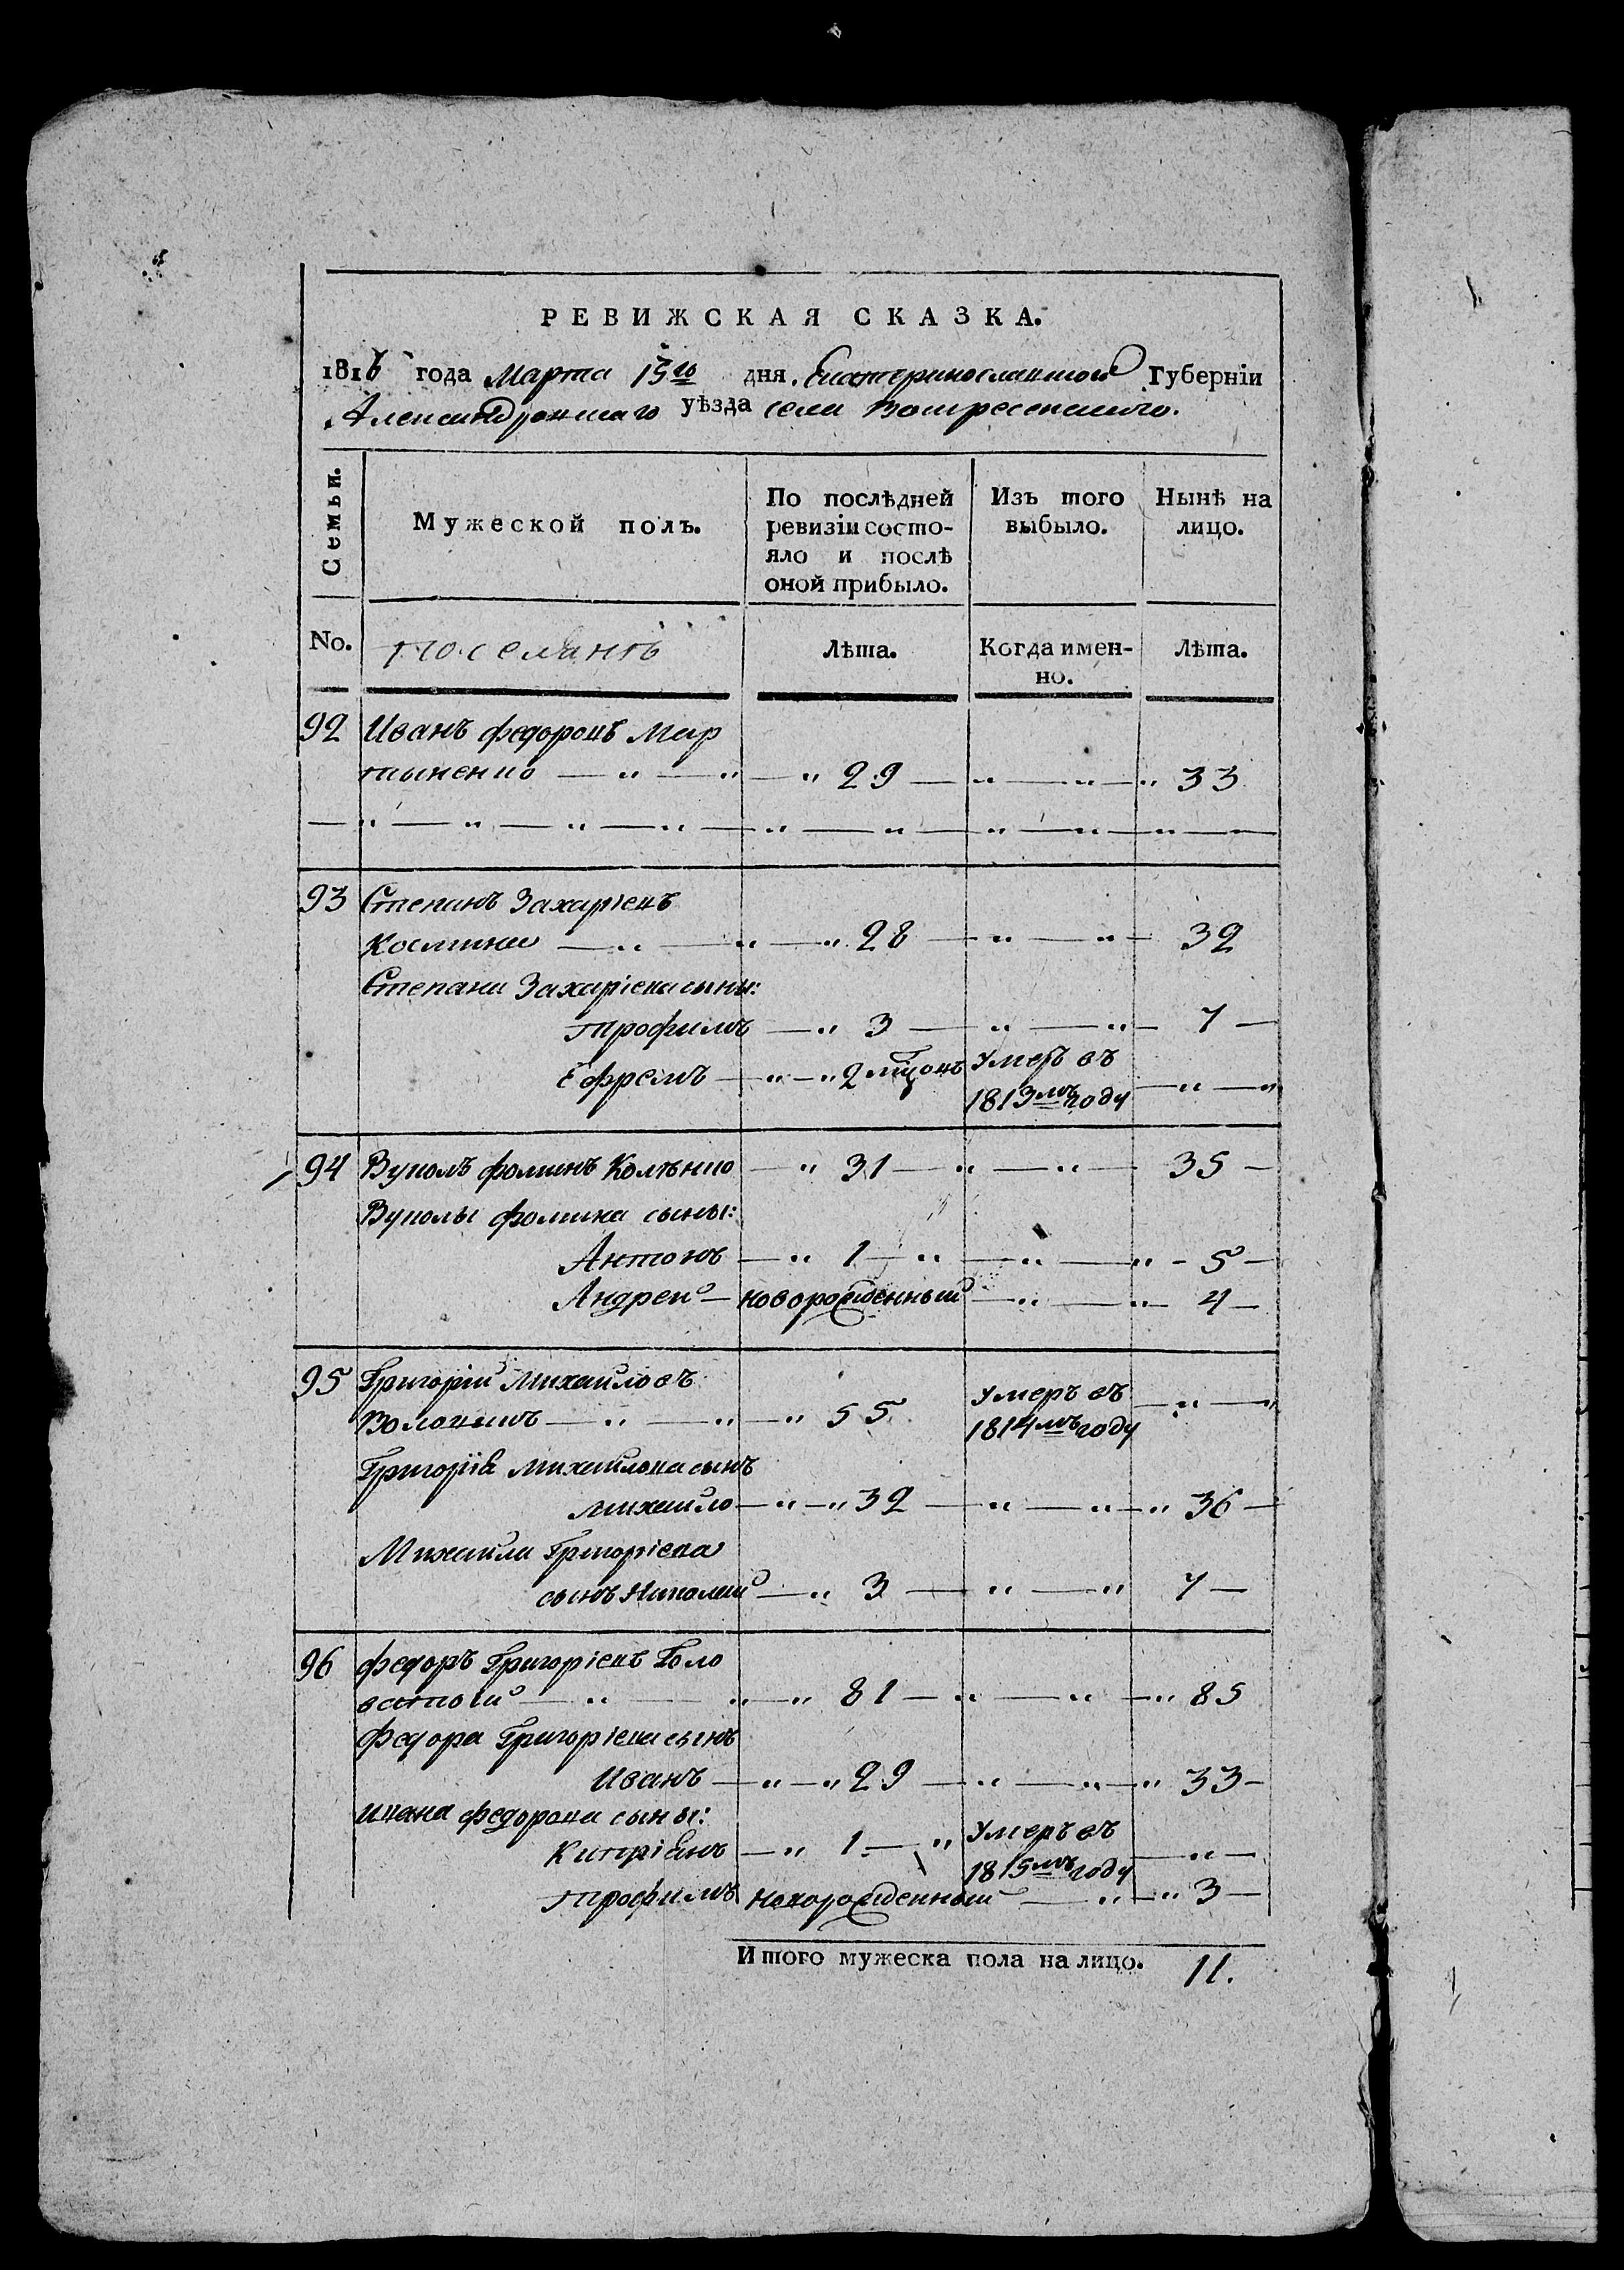 РЕВИЖСКАЯ СКАЗКА.
1816 года Марта 15го дня Екатеринославской Губерніи
Александровскаго уѣзда села Воскресенскаго.
Семьи. Мужеской полъ. По послѣдней ревизіи состо- Изъ того Нынѣ на
яло и послѣ оной прибыло. выбыло. лицо.
No. поселянъ Лѣта. Когда имен- Лѣта.
но.
92 Иванъ Федоровъ Мар
тыненко — „ — „ — „ 29 — „ — „ — „ 33
93 Степанъ Захаріевъ
— „ — „ — „ 28 — „ — „ — 32
Степана Захаріева сыны:
Трофимъ — „ 3 — „ — „ — 7 —
Ефремъ — „ — „ 2 мцовъ Умеръ въ
1813мъ году — „ — „
94 Вуколъ Фоминъ — „ 31 — „ — „ — 35 —
Вуколы Фомина сыны:
Антонъ — „ 1 — „ — „ — „ — 5 —
Андрей — новорожденный — „ — „ — 4 —
95 Григорій Михайловъ Умеръ въ
— „ — „ — „ 55 1814мъ году — „ — „
Григорія Михайлова сынъ
Михайло — „ — „ 32 — „ — „ — „ 36 —
Михайла Григоріева
сынъ Николай — „ 3 — „ — „ 7 —
96 Федоръ Григоріевъ Голо
ватой — „ — „ — „ 81 — „ — „ — „ 85
Федора Григоріева сынъ
Иванъ — „ — „ 29 — „ — „ — „ 33 —
Ивана Федорова сыны:
Кипріянъ — „ 1 — „ Умеръ въ
1815мъ году — „ —
Трофимъ новорожденный — „ — „ 3 —
Итого мужеска пола на лицо. 11.